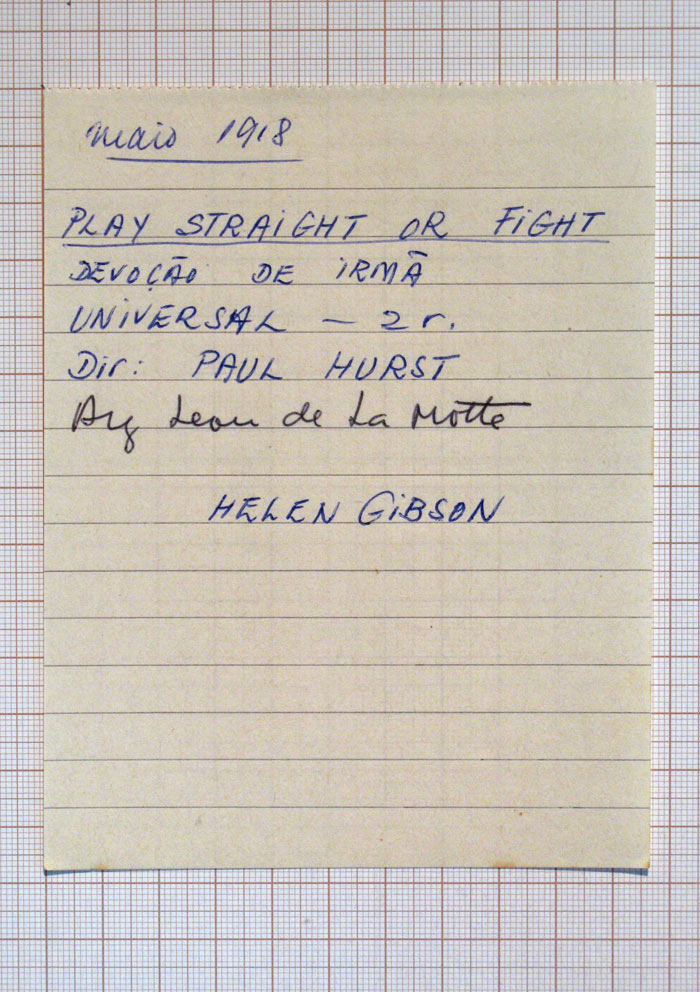 maio 1918
PLAY STRAiGHT OR FiGHT
DEVOÇÃO DE iRMÃ
UNiVERSAL — 2 r.
Dir: PAUL HURST
Arg Leon de La Motte
HELEN GiBSON